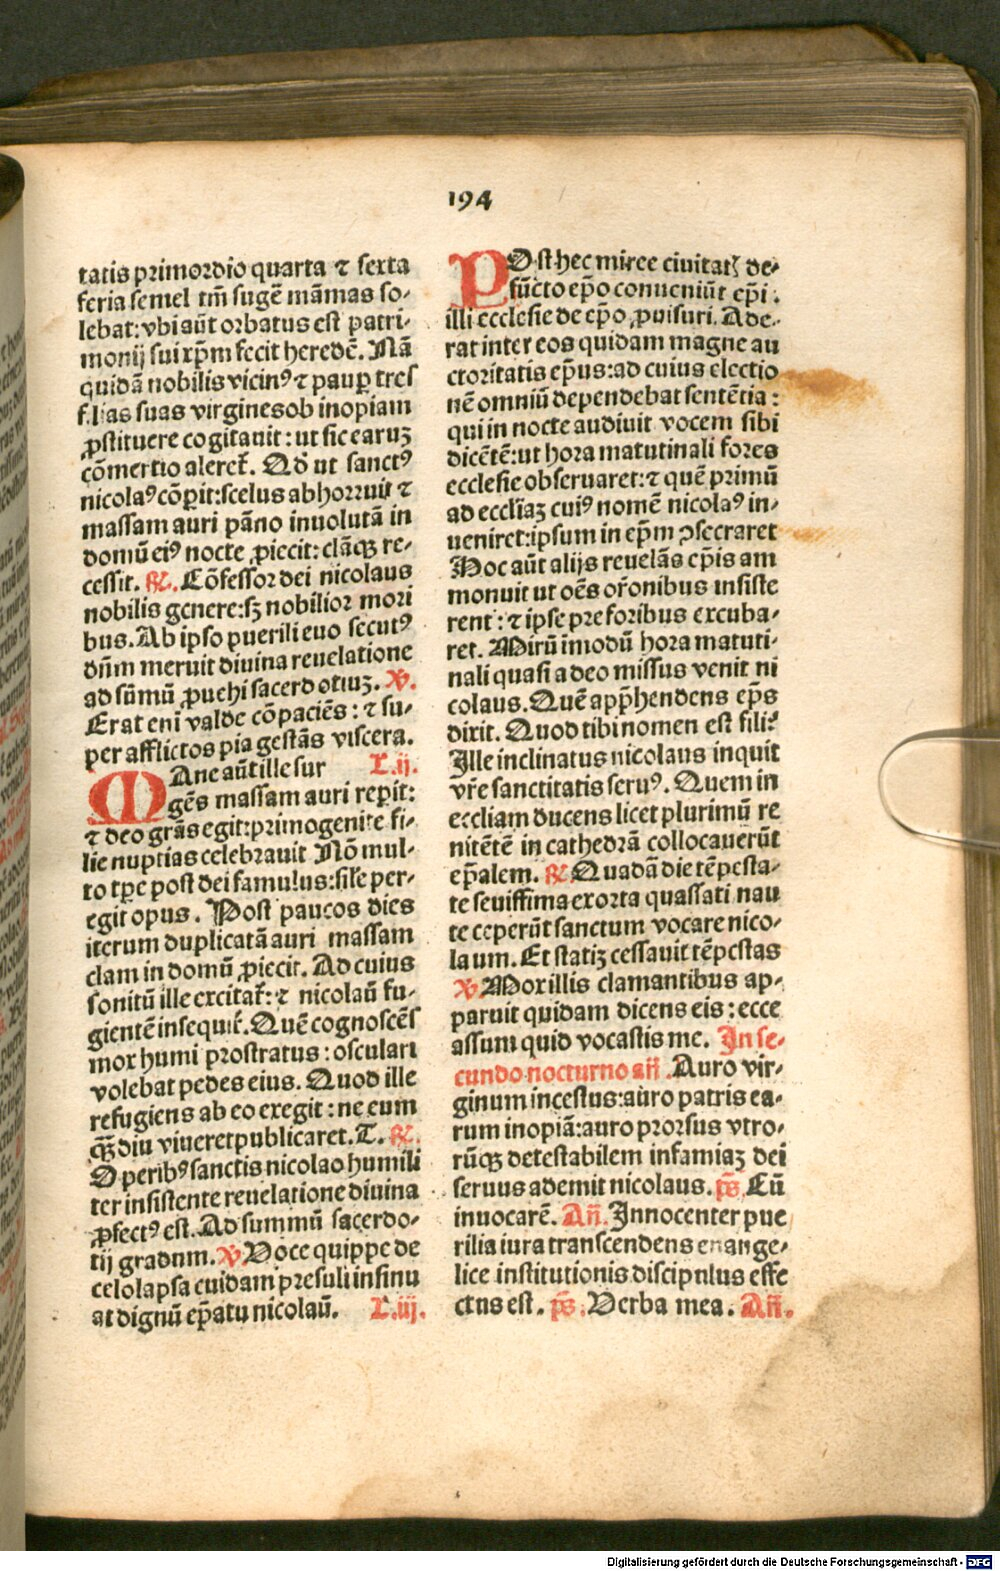 194
tatis primordio quarta ⁊ sexta
feria semel tm̄ sugē māmas so⸗
lebat: vbi aūt orbatus est patri⸗
monij sui xp̄m fecit heredē. Nā
quidā nobilis vicinꝰ ⁊ pauꝑ tres
filias suas virgines ob inopiam
ꝓstituere cogitauit: ut sic earuꝫ
cōmertio aleret̄. Qd̓ ut sanctꝰ
nicolaꝰ cōꝑit: scelus abhorruit ⁊
massam auri pāno inuolutā in
domū eiꝰ nocte ꝓiecit: clāqꝫ re⸗
cessit. ℟. Cōfessor dei nicolaus
nobilis genere: sꝫ nobilior mori
bus. Ab ipso puerili euo secutꝰ
dn̄m meruit diuina reuelatione
ad sūmū ꝓuehi sacerdotiuꝫ. ℣.
Erat enī valde cōpaciēs: ⁊ su⸗
per afflictos pia gestās viscera.
MAne aūt ille sur L.ij.
gēs massam auri reꝑit:
⁊ deo grās egit: primogenite fi⸗
lie nuptias celebrauit Nō mul⸗
to tꝑe post dei famulus: sil̓e per⸗
egit opus. Post paucos dies
iterum duplicatā auri massam
clam in domū ꝓiecit. Ad cuius
sonitū ille excitat̄: ⁊ nicolaū fu⸗
gientē insequit̄. Quē cognoscēs
mox humi prostratus: osculari
volebat pedes eius. Quod ille
refugiens ab eo exegit: ne eum
qꝫdiu viueret publicaret. T. ℟.
Operibꝰ sanctis nicolao humili
ter insistente reuelatione diuina
ꝓfectꝰ est. Ad summū sacerdo⸗
tij gradum. ℣. Voce quippe de
celo lapsa cuidam presuli insinu
at dignū ep̄atu nicolaū. L.iij.
POst hec miree ciuitatꝭ de⸗
fūcto ep̄o conueniūt ep̄i:
illi ecclesie de ep̄o ꝓuisuri. Ade⸗
rat inter eos quidam magne au
ctoritatis ep̄us: ad cuius electio
nē omniū dependebat sentētia:
qui in nocte audiuit vocem sibi
dicētē: ut hora matutinali fores
ecclesie obseruaret: ⁊ quē primū
ad eccl̄iaꝫ cuiꝰ nomē nicolaꝰ in⸗
ueniret: ipsum in ep̄m ꝯsecraret
Hoc aūt alijs reuelās ep̄is am
monuit ut oēs or̄onibus insiste
rent: ⁊ ipse pre foribus excuba⸗
ret. Mirū imodū hora matuti⸗
nali quasi a deo missus venit ni
colaus. Quē app̄hendens ep̄s
dixit. Quod tibi nomen est fili?
Ille inclinatus nicolaus inquit
vr̄e sanctitatis seruꝰ. Quem in
eccliam ducens licet plurimū re
nitētē in cathedrā collocauerūt
ep̄alem. ℟. Quadā die tēpesta⸗
te seuissima exorta quassati nau
te ceperūt sanctum vocare nico⸗
laum. Et statiꝫ cessauit tēpestas
℣. Mox illis clamantibus ap⸗
paruit quidam dicens eis: ecce
assum quid vocastis me. In se⸗
cundo nocturno an̄. Auro vir⸗
ginum incestus: auro patris ea⸗
rum inopiā: auro prorsus vtro⸗
rūqꝫ detestabilem infamiaꝫ dei
seruus ademit nicolaus. p̄s. Cū
inuocarē. An̄. Innocenter pue
rilia iura transcendens euange⸗
lice institutionis discipulus effe
ctus est. p̄s. Verba mea. An̄.
Digitalisierung gefördert durch die Deutsche Forschungsgemeinschaft - DFG